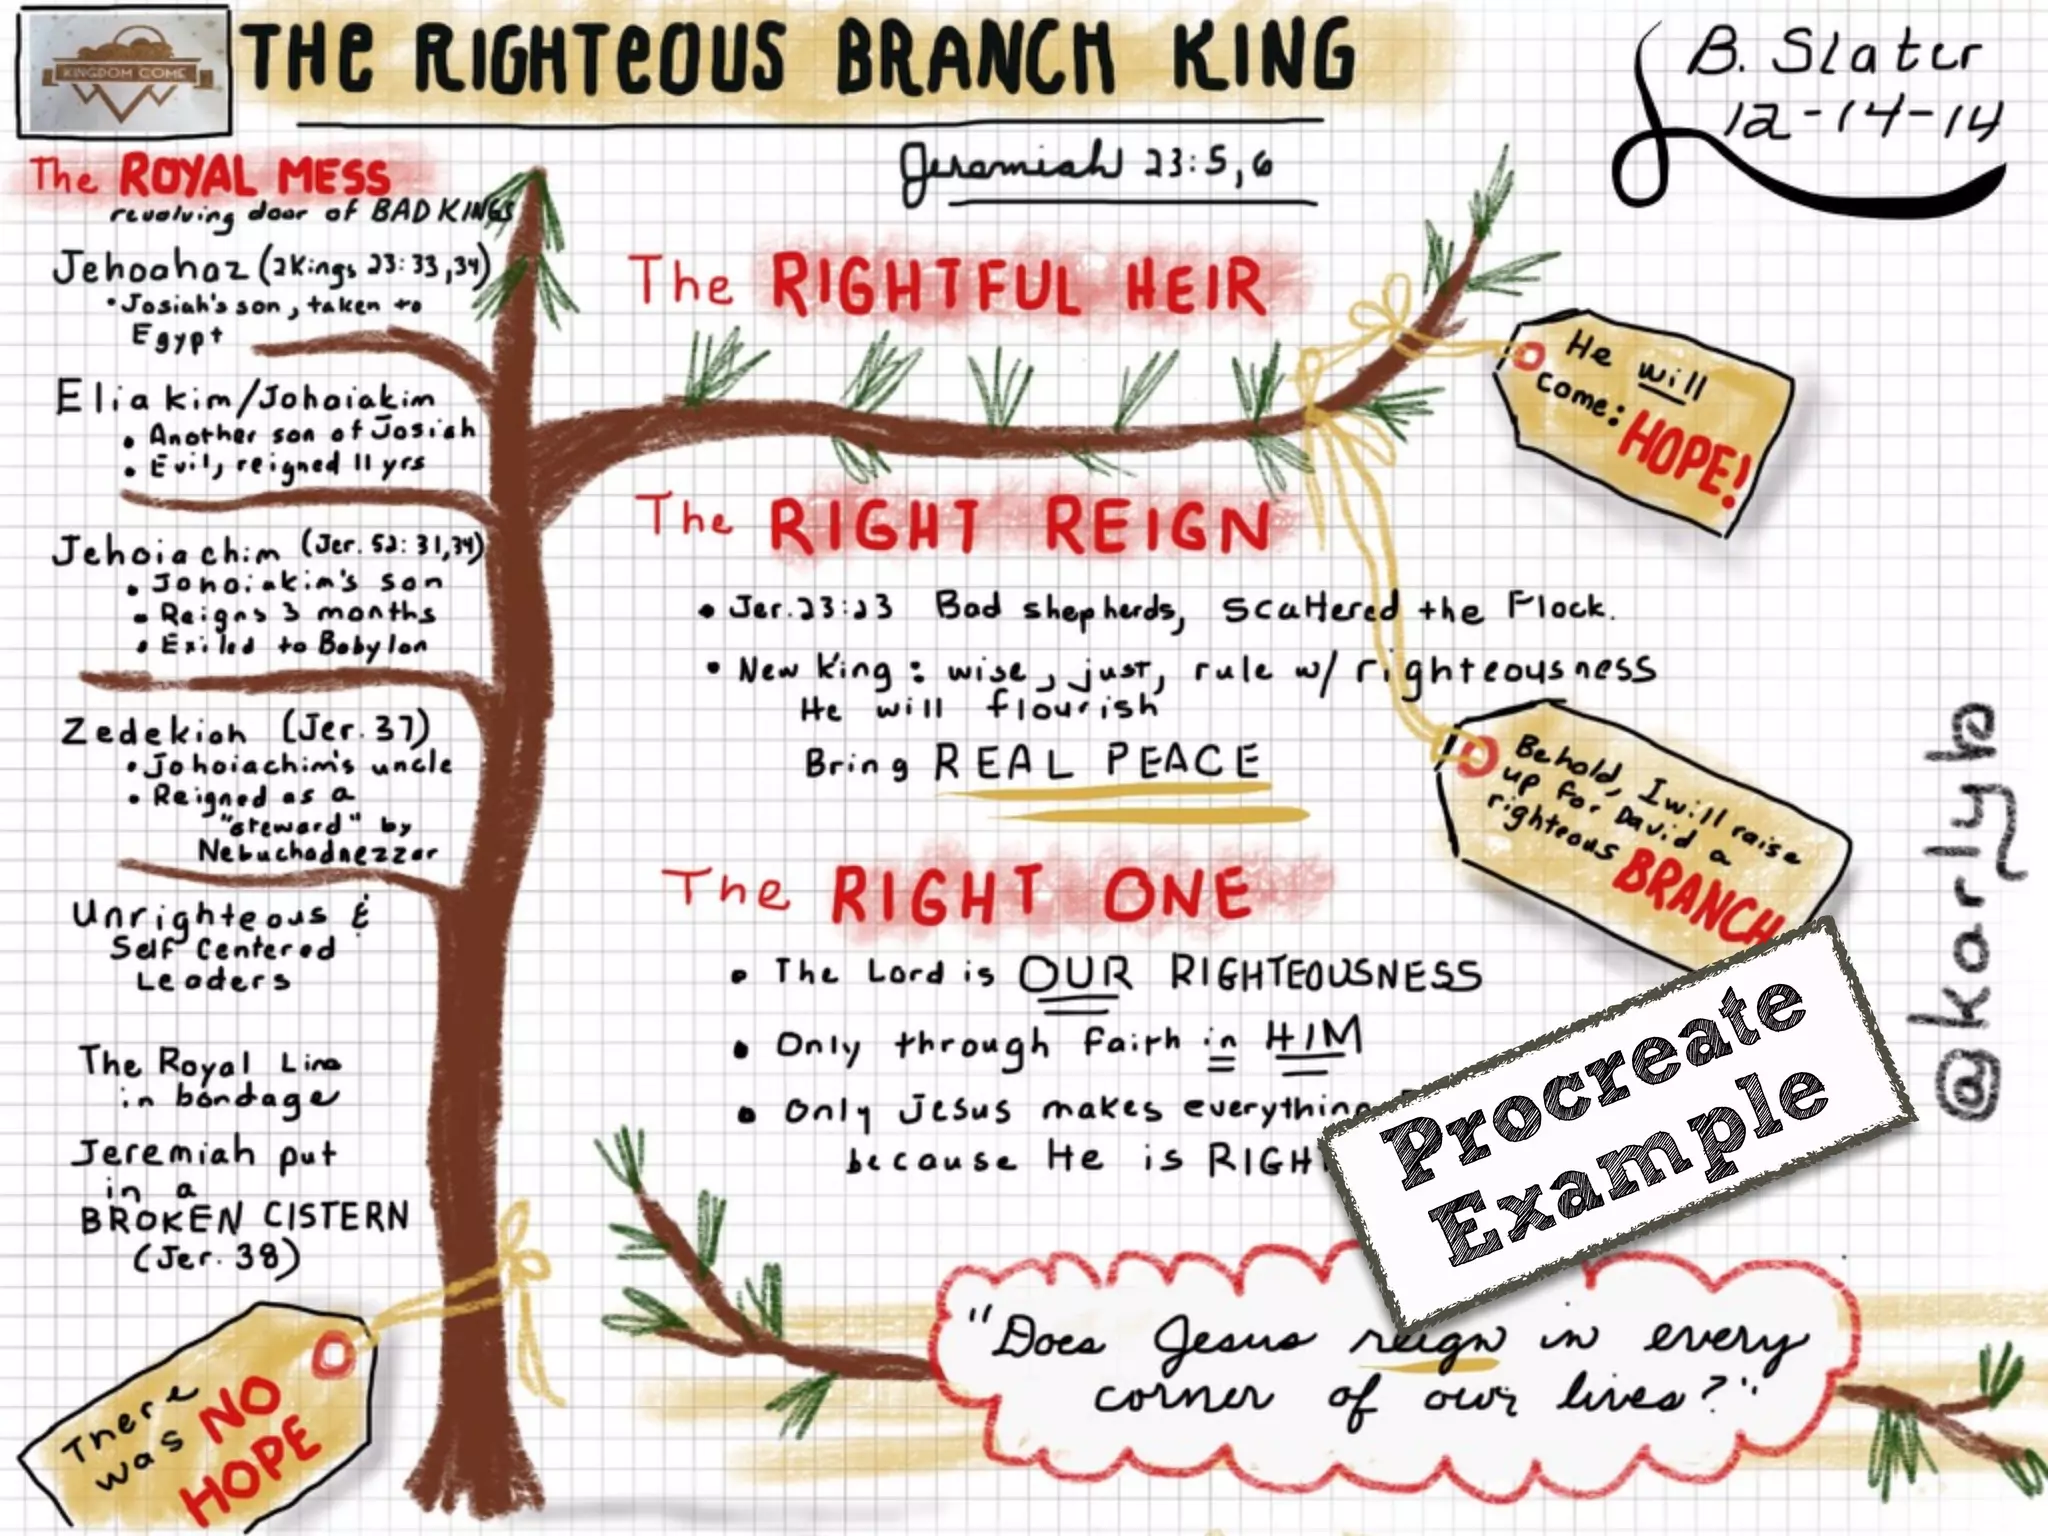 KINGDOM COME
THE RIGHTEOUS BRANCH KING
B. Slater
12-14-14
Jeramiah 23:5,6
The ROYAL MESS
revolving door of BAD KINGS
Jehoahaz (2Kings 23:33,34)
• Josiah's son, taken to
Egypt
Eliakim/Johoiakim
• Another son of Josiah
• Evil, reigned 11 yrs
Jehoiachim (Jer. 52:31,34)
• Johoiakim's son
• Reigns 3 months
• Exiled to Babylon
Zedekiah (Jer. 37)
• Johoiachim's uncle
• Reigned as a
"steward" by
Nebuchadnezzar
Unrighteous &
Self Centered
Leaders
The Royal Line
in bondage
Jeremiah put
in a
BROKEN CISTERN
(Jer. 38)
There
was NO
HOPE
The RIGHTFUL HEIR
He will
come:
HOPE!
The RIGHT REIGN
• Jer.23:23 Bad shepherds, scattered the Flock.
• New King: wise, just, rule w/ righteousness
He will flourish
Bring REAL PEACE
Behold, I will raise
up for David a
righteous
BRANCH
The RIGHT ONE
• The Lord is OUR RIGHTEOUSNESS
• Only through Faith in HIM
• Only Jesus makes everything
because He is RIGHT
Procreate
Example
@karlyb
"Does Jesus reign in every
corner of our lives?"